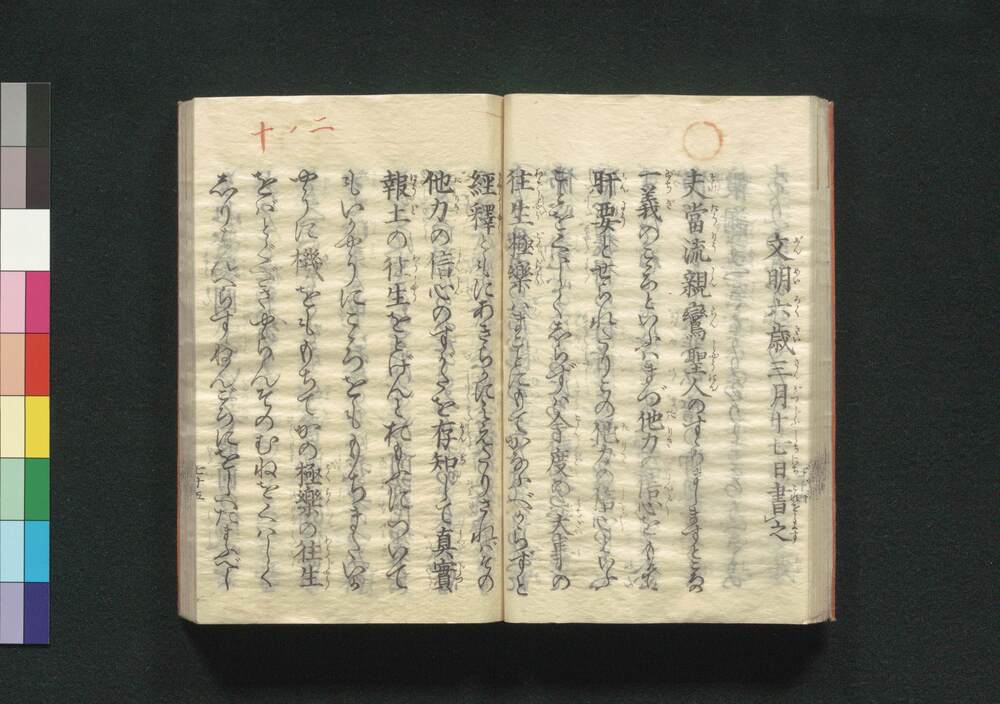 文明六歳三月十七日書之
夫當流親鸞聖人のすゝめましますところの
一義のこゝろといふはまづ他力の信心をもて
肝要とせられたりこの他力の信心といふ
ことをくはしくしらずは今度の一大事の
往生極樂はまことにもてかなふべからずと
二ノ十
經釋ともにあきらかにみえたりさればその
他力の信心のすがたを存知して真實
報土の往生をとげんとおもふについて
もいかやうにこゝろをももちまたいか
やうに機をももちてかの極樂の往生
をばとぐべきやらんそのむねをくはしく
しりはんべらずねんごろにをしへたまふべし
七十五